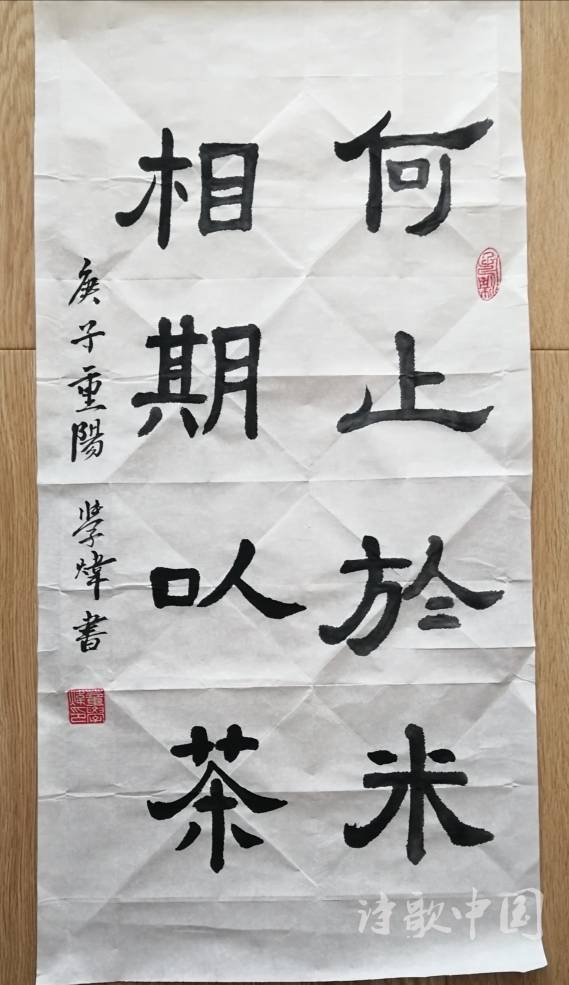 何止於米
相期以茶
庚子重陽 學煒書
诗歌中国